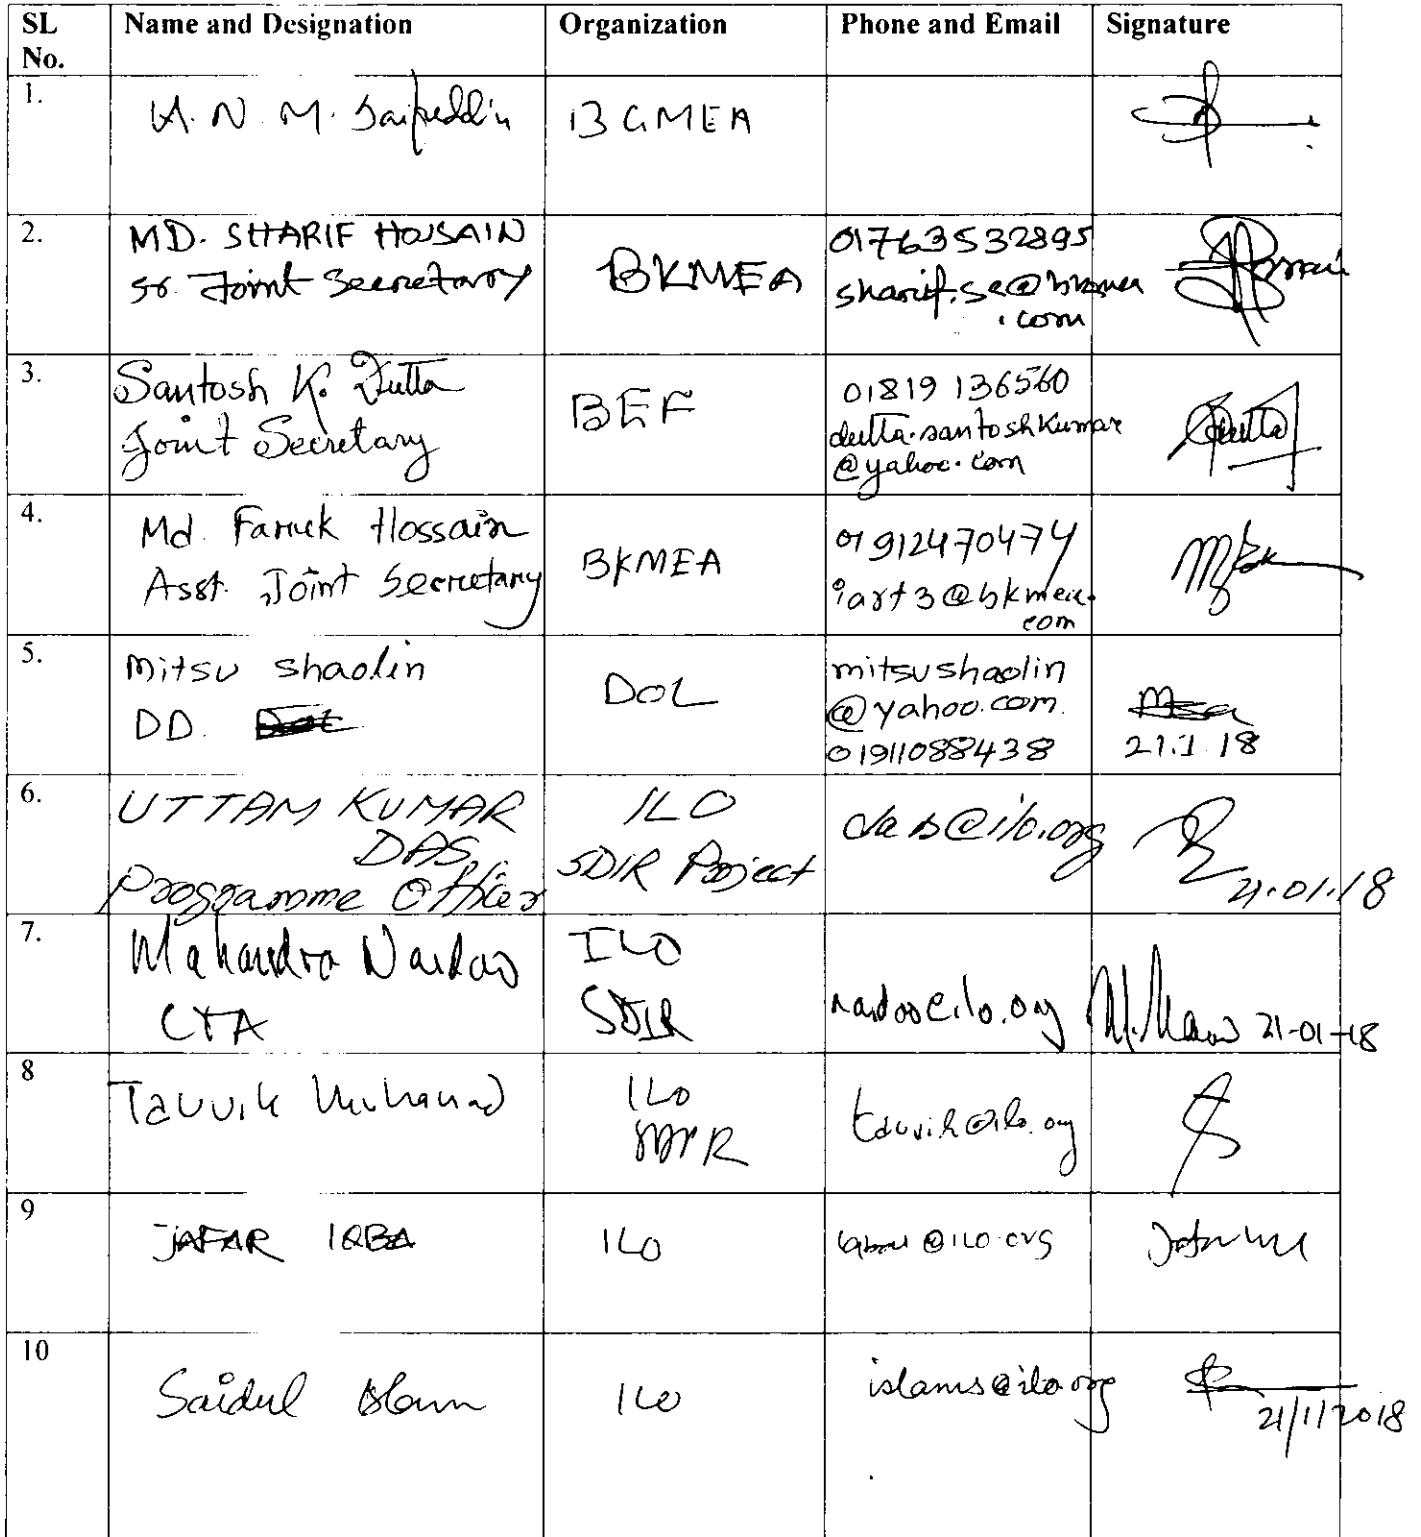 SL No.
Name and Designation
Organization
Phone and Email
Signature
1.
A. N. M. Saifuddin
BGMEA
2.
MD. SHARIF HOSSAIN
Sr. Joint Secretary
BKMEA
01763532895
sharif.se@bkmea
.com
3.
Santosh K. Dutta
Joint Secretary
BEF
01819 136560
dutta.santoshkumar
@yahoo.com
Dutta
4.
Md. Faruck Hossain
Asst. Joint Secretary
BKMEA
01912470474
iart3@bkmea.
com
5.
Mitsu shaolin
DD.
DOL
mitsushaolin
@yahoo.com
01911088438
21.1.18
6.
UTTAM KUMAR
DAS,
Programme Officer
ILO
SDIR Project
das@ilo.org
21.01.18
7.
CTA
ILO
SDIR
naidoo@ilo.org
21-01-18
8
ILO
tauvik@ilo.org
9
JAFAR IQBA
ILO
iqbal@ILO.org
10
Saidul Islam
ILO
islams@ilo.org
21/1/2018